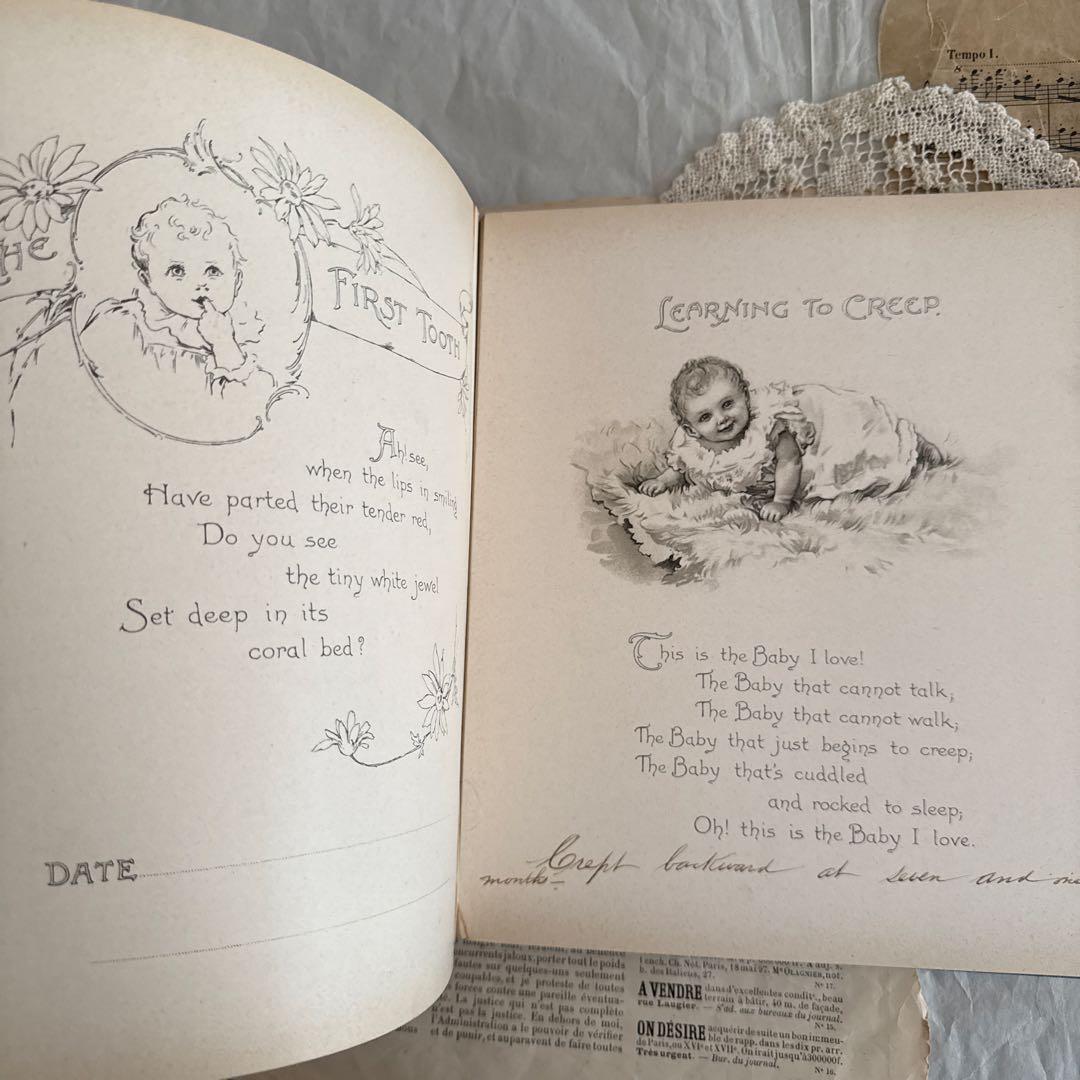 Tempo I.
8
HE
FIRST TOOTH
Ah! see,
when the lips in smiling
Have parted their tender red,
Do you see
the tiny white jewel
Set deep in its
coral bed?
DATE
LEARNING TO CREEP.
This is the Baby I love!
The Baby that cannot talk;
The Baby that cannot walk;
The Baby that just begins to creep;
The Baby that's cuddled
and rocked to sleep;
Oh! this is the Baby I love.
Crept backward at seven and
months—
oncurrents jaloux, porter tout le poids
fautes sur quelques-uns seulement
coupables, et je proteste de toutes
forces contre une pareille éventua-
La justice qui n'est pas complète
n'est pas la justice. En dehors de moi,
l'Administration a le pouvoir de vérifier
et de punir, et auparavent de faire toutes
1 ench. Ch. Not. Paris, 18 mai 97. Me OLAGNIER, not.
b. des Italiens, 27.
No 17.
A VENDRE dans d'excellentes condit., beau
terrain à bâtir, 40 m. de façade,
rue Laugier. — S'ad. aux bureaux du journal.
No 15.
ON DÉSIRE acquérir de suite un bon immeu-
ble de rapp. dans les dix pr. arr.
de Paris, ou XVIe et XVIIe. On irait jusqu'à 300000f.
Très urgent. — Bur. du journal.
No 16.